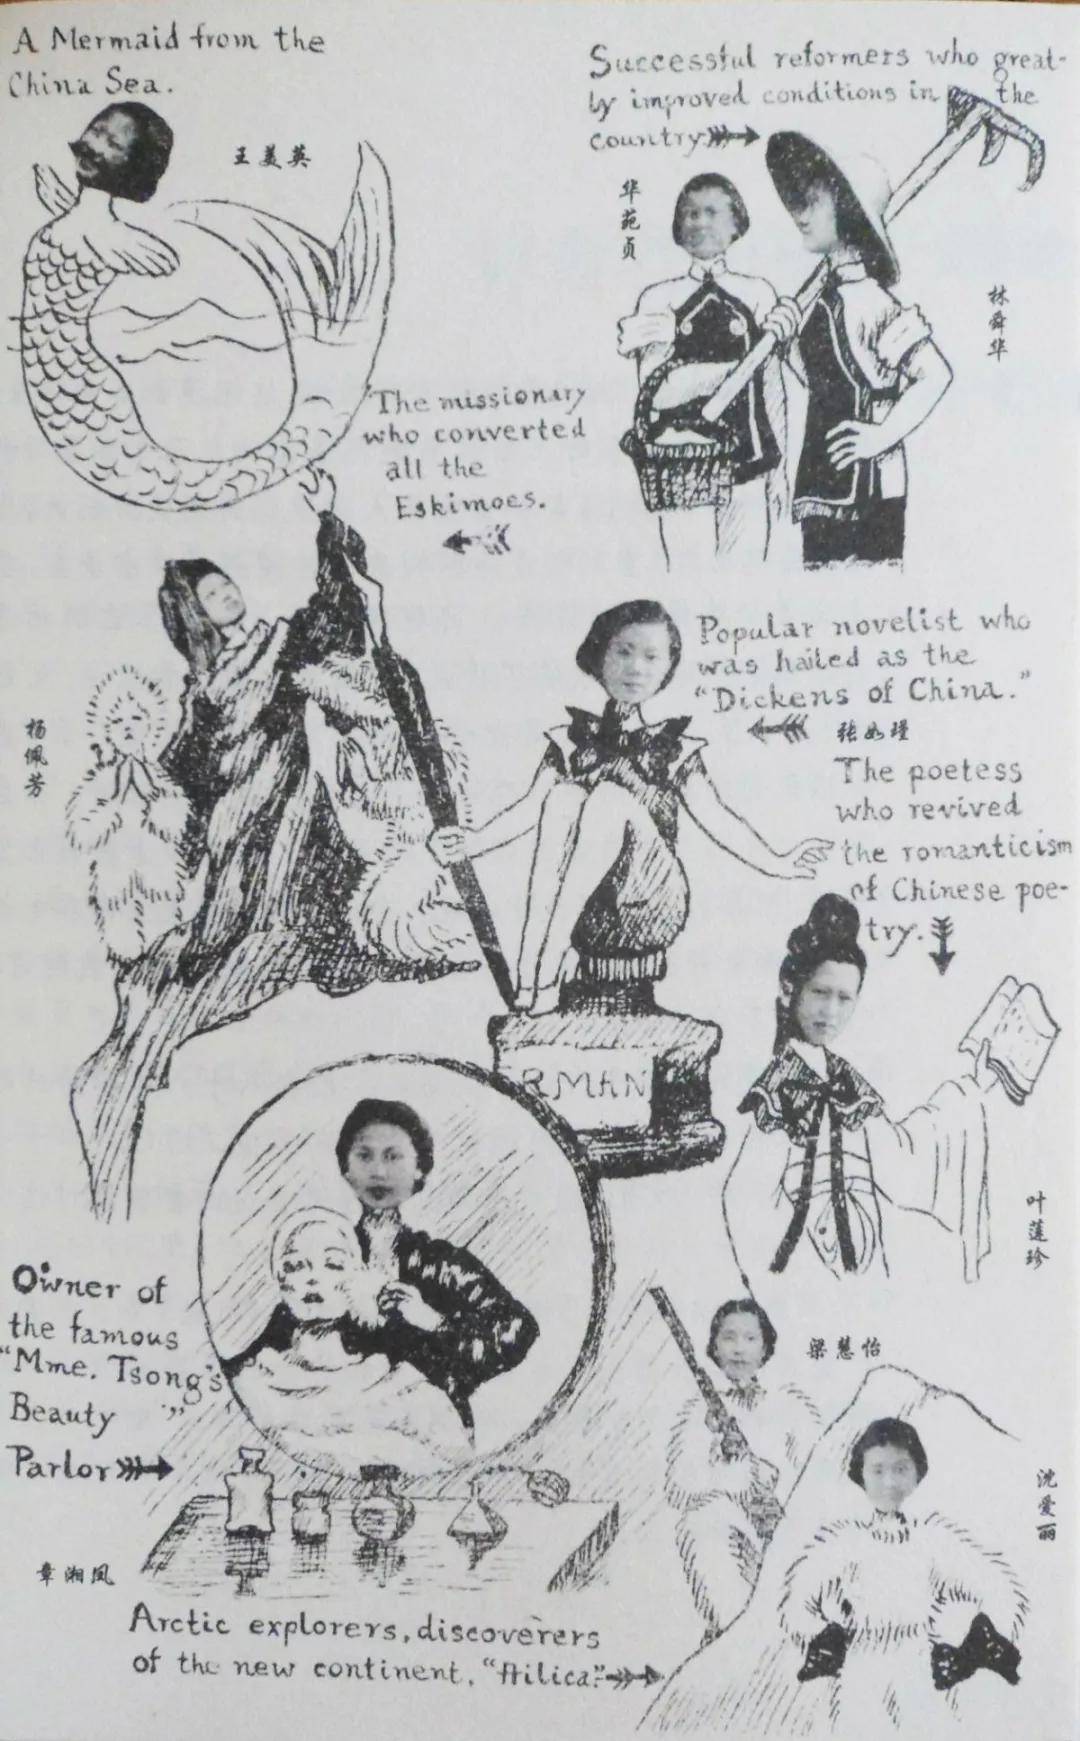 A Mermaid from the
China Sea.
王美英
Successful reformers who great-
ly improved conditions in the
country
华菀贞
林舜华
The missionary
who converted
all the
Eskimoes.
杨佩芳
Popular novelist who
was hailed as the
"Dickens of China."
张如瑾
The poetess
who revived
the romanticism
of Chinese poe-
try.
叶莲珍
ERMAN
Owner of
the famous
"Mme. Tsong's
Beauty "
Parlor
章湘凤
梁慧怡
沈爱丽
Arctic explorers, discoverers
of the new continent, "Ailica".